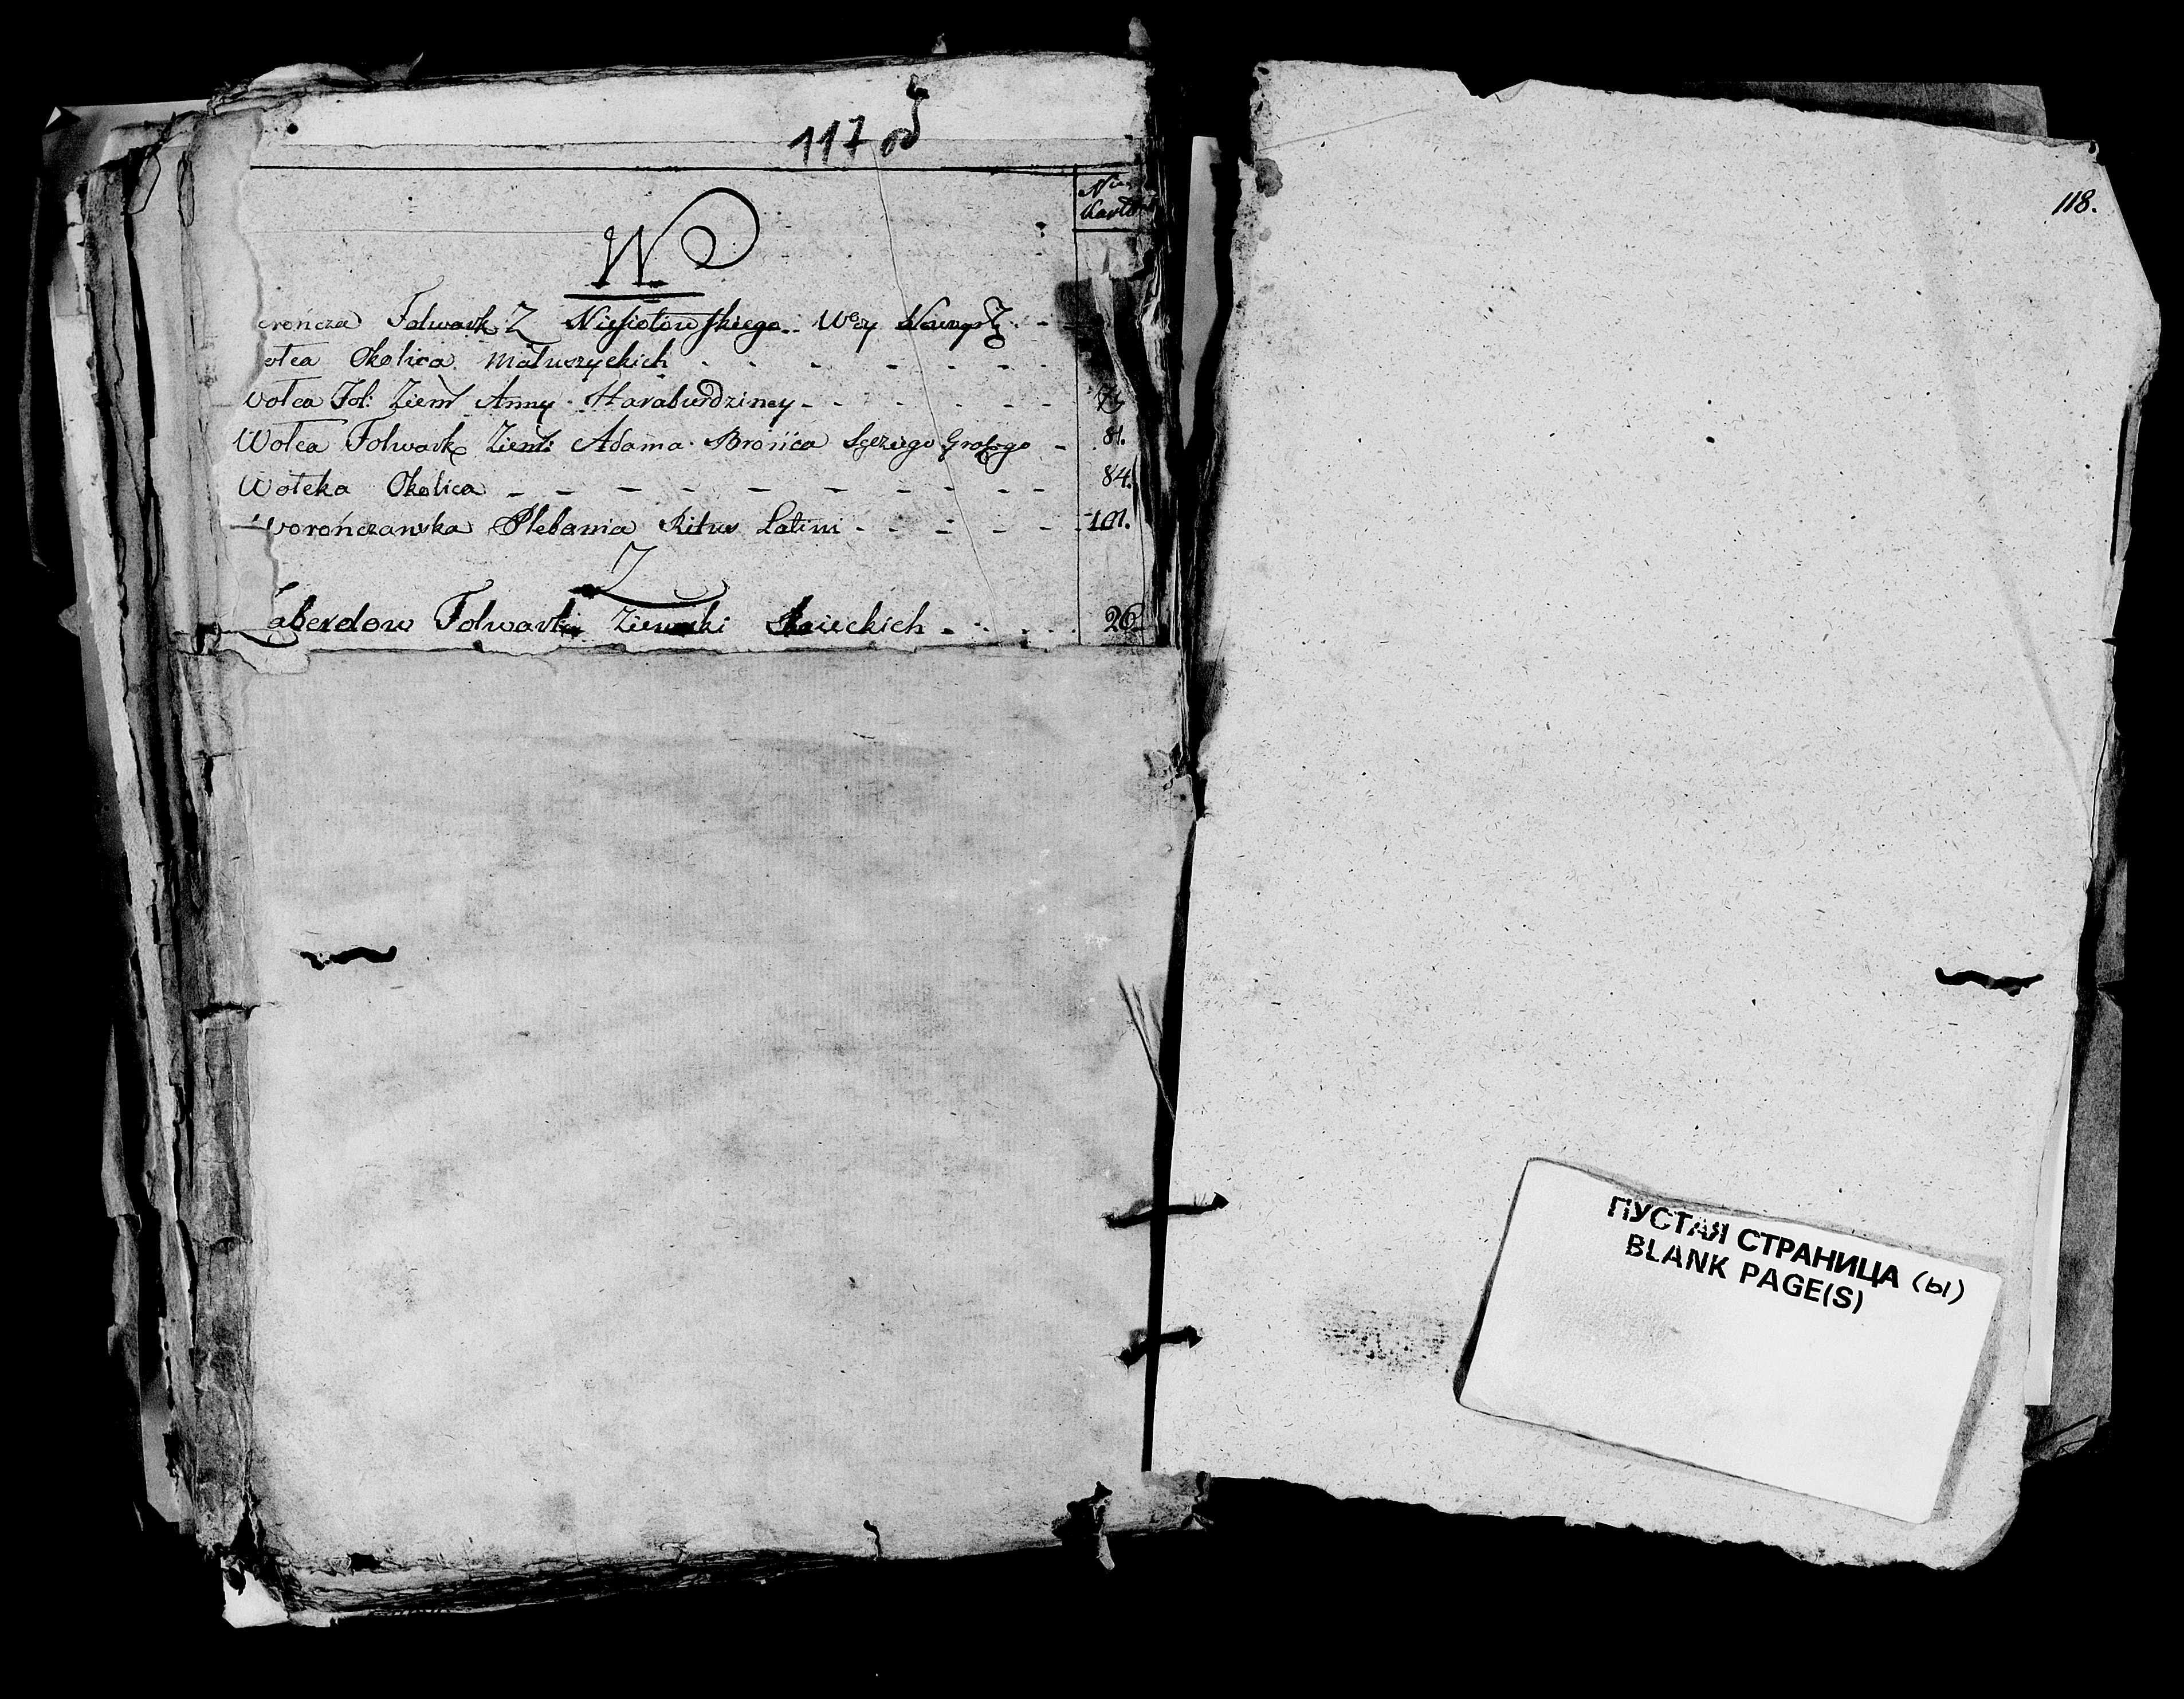 117 об
Nu
Karty
W
erończa Folwark Z Niesiołowskiego Wdy
ołca Okolica Matuszyckich
Wołca Fol: Ziem Anny Haraburdziney 79
Wołca Folwark Ziem: Adama Brońca Sęziego Grogo 81.
Wołcka Okolica 84.
Worończanska Plebania Ritus Latini 101.
Z
aberdow Folwark Ziemski 26
118.
ПУСТАЯ СТРАНИЦА (Ы)
BLANK PAGE(S)